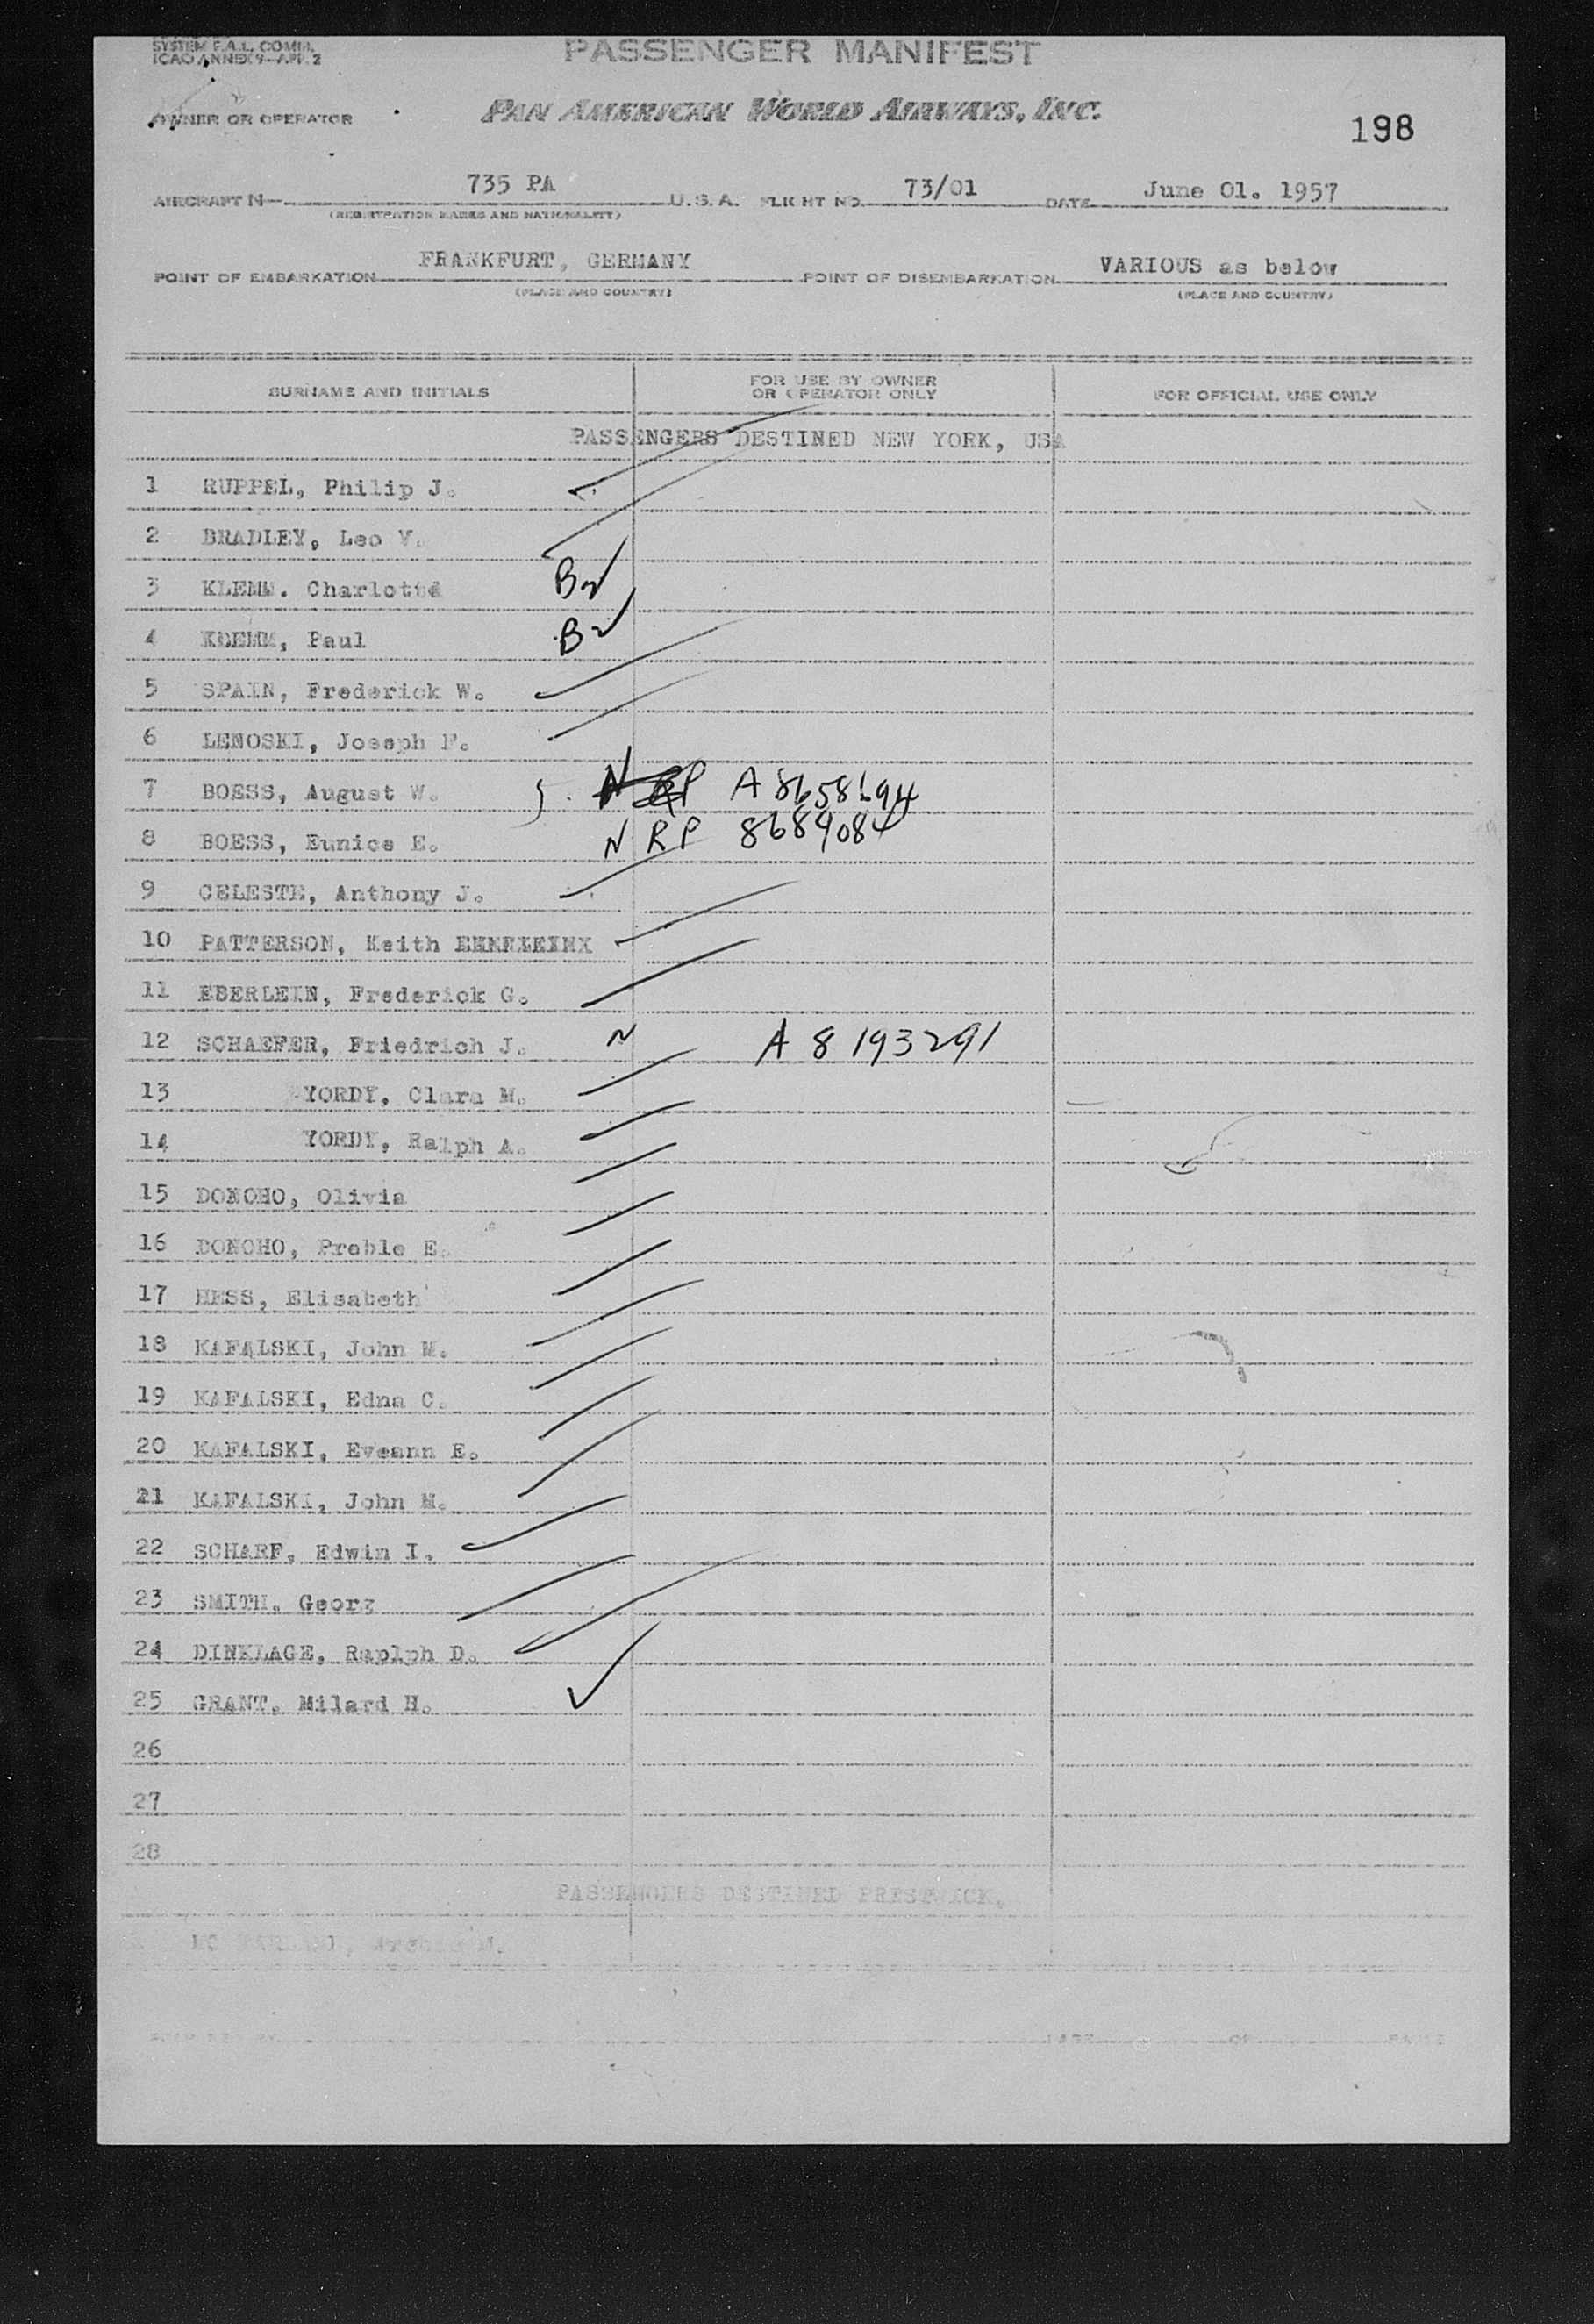 SYSTEM F.A.L. COMM.
ICAO ANNEX 9—APP. 2
PASSENGER MANIFEST
OWNER OR OPERATOR
PAN AMERICAN WORLD AIRWAYS, INC.
198
AIRCRAFT N— 735 PA U.S.A. FLIGHT NO. 73/01 DATE June 01. 1957
(REGISTRATION MARKS AND NATIONALITY)
POINT OF EMBARKATION FRANKFURT, GERMANY POINT OF DISEMBARKATION VARIOUS as below
(PLACE AND COUNTRY) (PLACE AND COUNTRY)
SURNAME AND INITIALS FOR USE BY OWNER OR OPERATOR ONLY FOR OFFICIAL USE ONLY
PASSENGERS DESTINED NEW YORK, USA
1 RUPPEL, Philip J.
2 BRADLEY, Leo V.
3 KLEMM. Charlotte B2
4 KLEMM, Paul B2
5 SPAIN, Frederick W.
6 LENOSKI, Joseph F.
7 BOESS, August W. N RP A 8658694
8 BOESS, Eunice E. N RP 8689084
9 CELESTE, Anthony J.
10 PATTERSON, Keith
11 EBERLEIN, Frederick G.
12 SCHAEFER, Friedrich J. N A 8 193291
13 YORDY, Clara M.
14 YORDY, Ralph A.
15 DONOHO, Olivia
16 DONOHO, Preble E.
17 HESS, Elisabeth
18 KAFALSKI, John M.
19 KAFALSKI, Edna C.
20 KAFALSKI, Eveann E.
21 KAFALSKI, John M.
22 SCHARF, Edwin I.
23 SMITH. Georg
24 DINKLAGE, Raplph D.
25 GRANT. Milard H.
26
27
28
PASSENGERS DESTINED PRESTWICK.
MC
PAGE OF PAGES